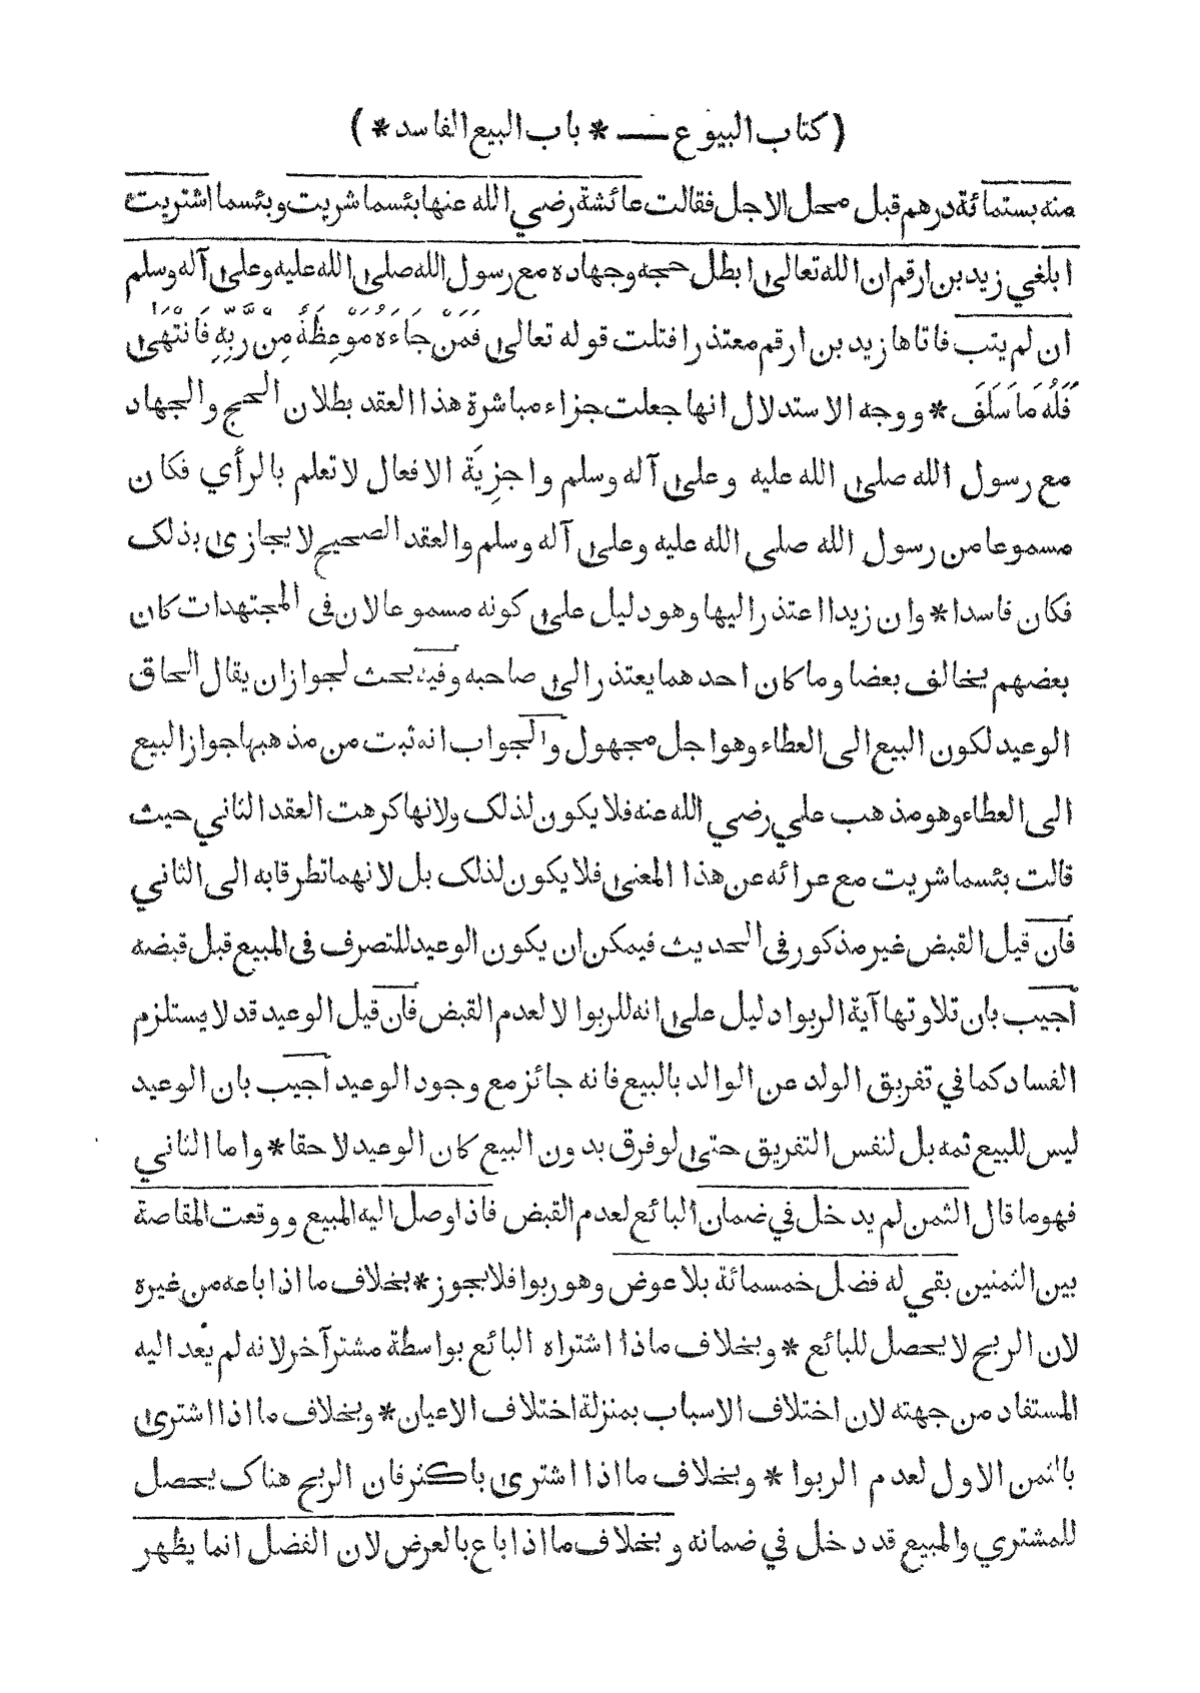 ( كتاب البيوع ــــ * باب البيع الفاسد * )
منه بستمائة درهم قبل محل الاجل فقالت عائشة رضي الله عنها بئسما شريت وبئسما اشتريت
ابلغي زيد بن ارقم ان الله تعالى ابطل حجه وجهاده مع رسول الله صلى الله عليه وعلى آله وسلم
ان لم يتب فاتاها زيد بن ارقم معتذرا فتلت قوله تعالى فَمَنْ جَاءَهُ مَوْعِظَةٌ مِنْ رَّبِّهِ فَانْتَهَى
فَلَهُ مَا سَلَفَ * ووجه الاستدلال انها جعلت جزاء مباشرة هذا العقد بطلان الحج والجهاد
مع رسول الله صلى الله عليه وعلى آله وسلم واجزِيَة الافعال لا تعلم بالرأي فكان
مسموعا من رسول الله صلى الله عليه وعلى آله وسلم والعقد الصحيح لا يجازى بذلك
فكان فاسدا * وان زيدا اعتذر اليها وهو دليل على كونه مسموعا لان فى المجتهدات كان
بعضهم يخالف بعضا وما كان احدهما يعتذر الى صاحبه وفيه بحث لجواز ان يقال الحاق
الوعيد لكون البيع الى العطاء وهو اجل مجهول والجواب انه ثبت من مذهبها جواز البيع
الى العطاء وهو مذهب علي رضي الله عنه فلا يكون لذلك ولانها كرهت العقد الثاني حيث
قالت بئسما شريت مع عرائه عن هذا المعنى فلا يكون لذلك بل لانهما تطرقا به الى الثاني
فان قيل القبض غير مذكور فى الحديث فيمكن ان يكون الوعيد للتصرف فى المبيع قبل قبضه
أجيب بان تلاوتها آية الربوا دليل على انه للربوا لا لعدم القبض فان قيل الوعيد قد لا يستلزم
الفساد كما في تفريق الولد عن الوالد بالبيع فانه جائز مع وجود الوعيد أجيب بان الوعيد
ليس للبيع ثمه بل لنفس التفريق حتى لو فرق بدون البيع كان الوعيد لاحقا * واما الثاني
فهو ما قال الثمن لم يدخل في ضمان البائع لعدم القبض فاذا وصل اليه المبيع ووقعت المقاصة
بين الثمنين بقي له فضل خمسمائة بلا عوض وهو ربوا فلا يجوز * بخلاف ما اذا باعه من غيره
لان الربح لا يحصل للبائع * وبخلاف ماذا اشتراه البائع بواسطة مشتر آخر لانه لم يُعد اليه
المستفاد من جهته لان اختلاف الاسباب بمنزلة اختلاف الاعيان * وبخلاف ما اذا اشترى
بالثمن الاول لعدم الربوا * وبخلاف ما اذا اشترى باكثر فان الربح هناك يحصل
للمشتري والمبيع قد دخل في ضمانه وبخلاف ما اذا باع بالعرض لان الفضل انما يظهر